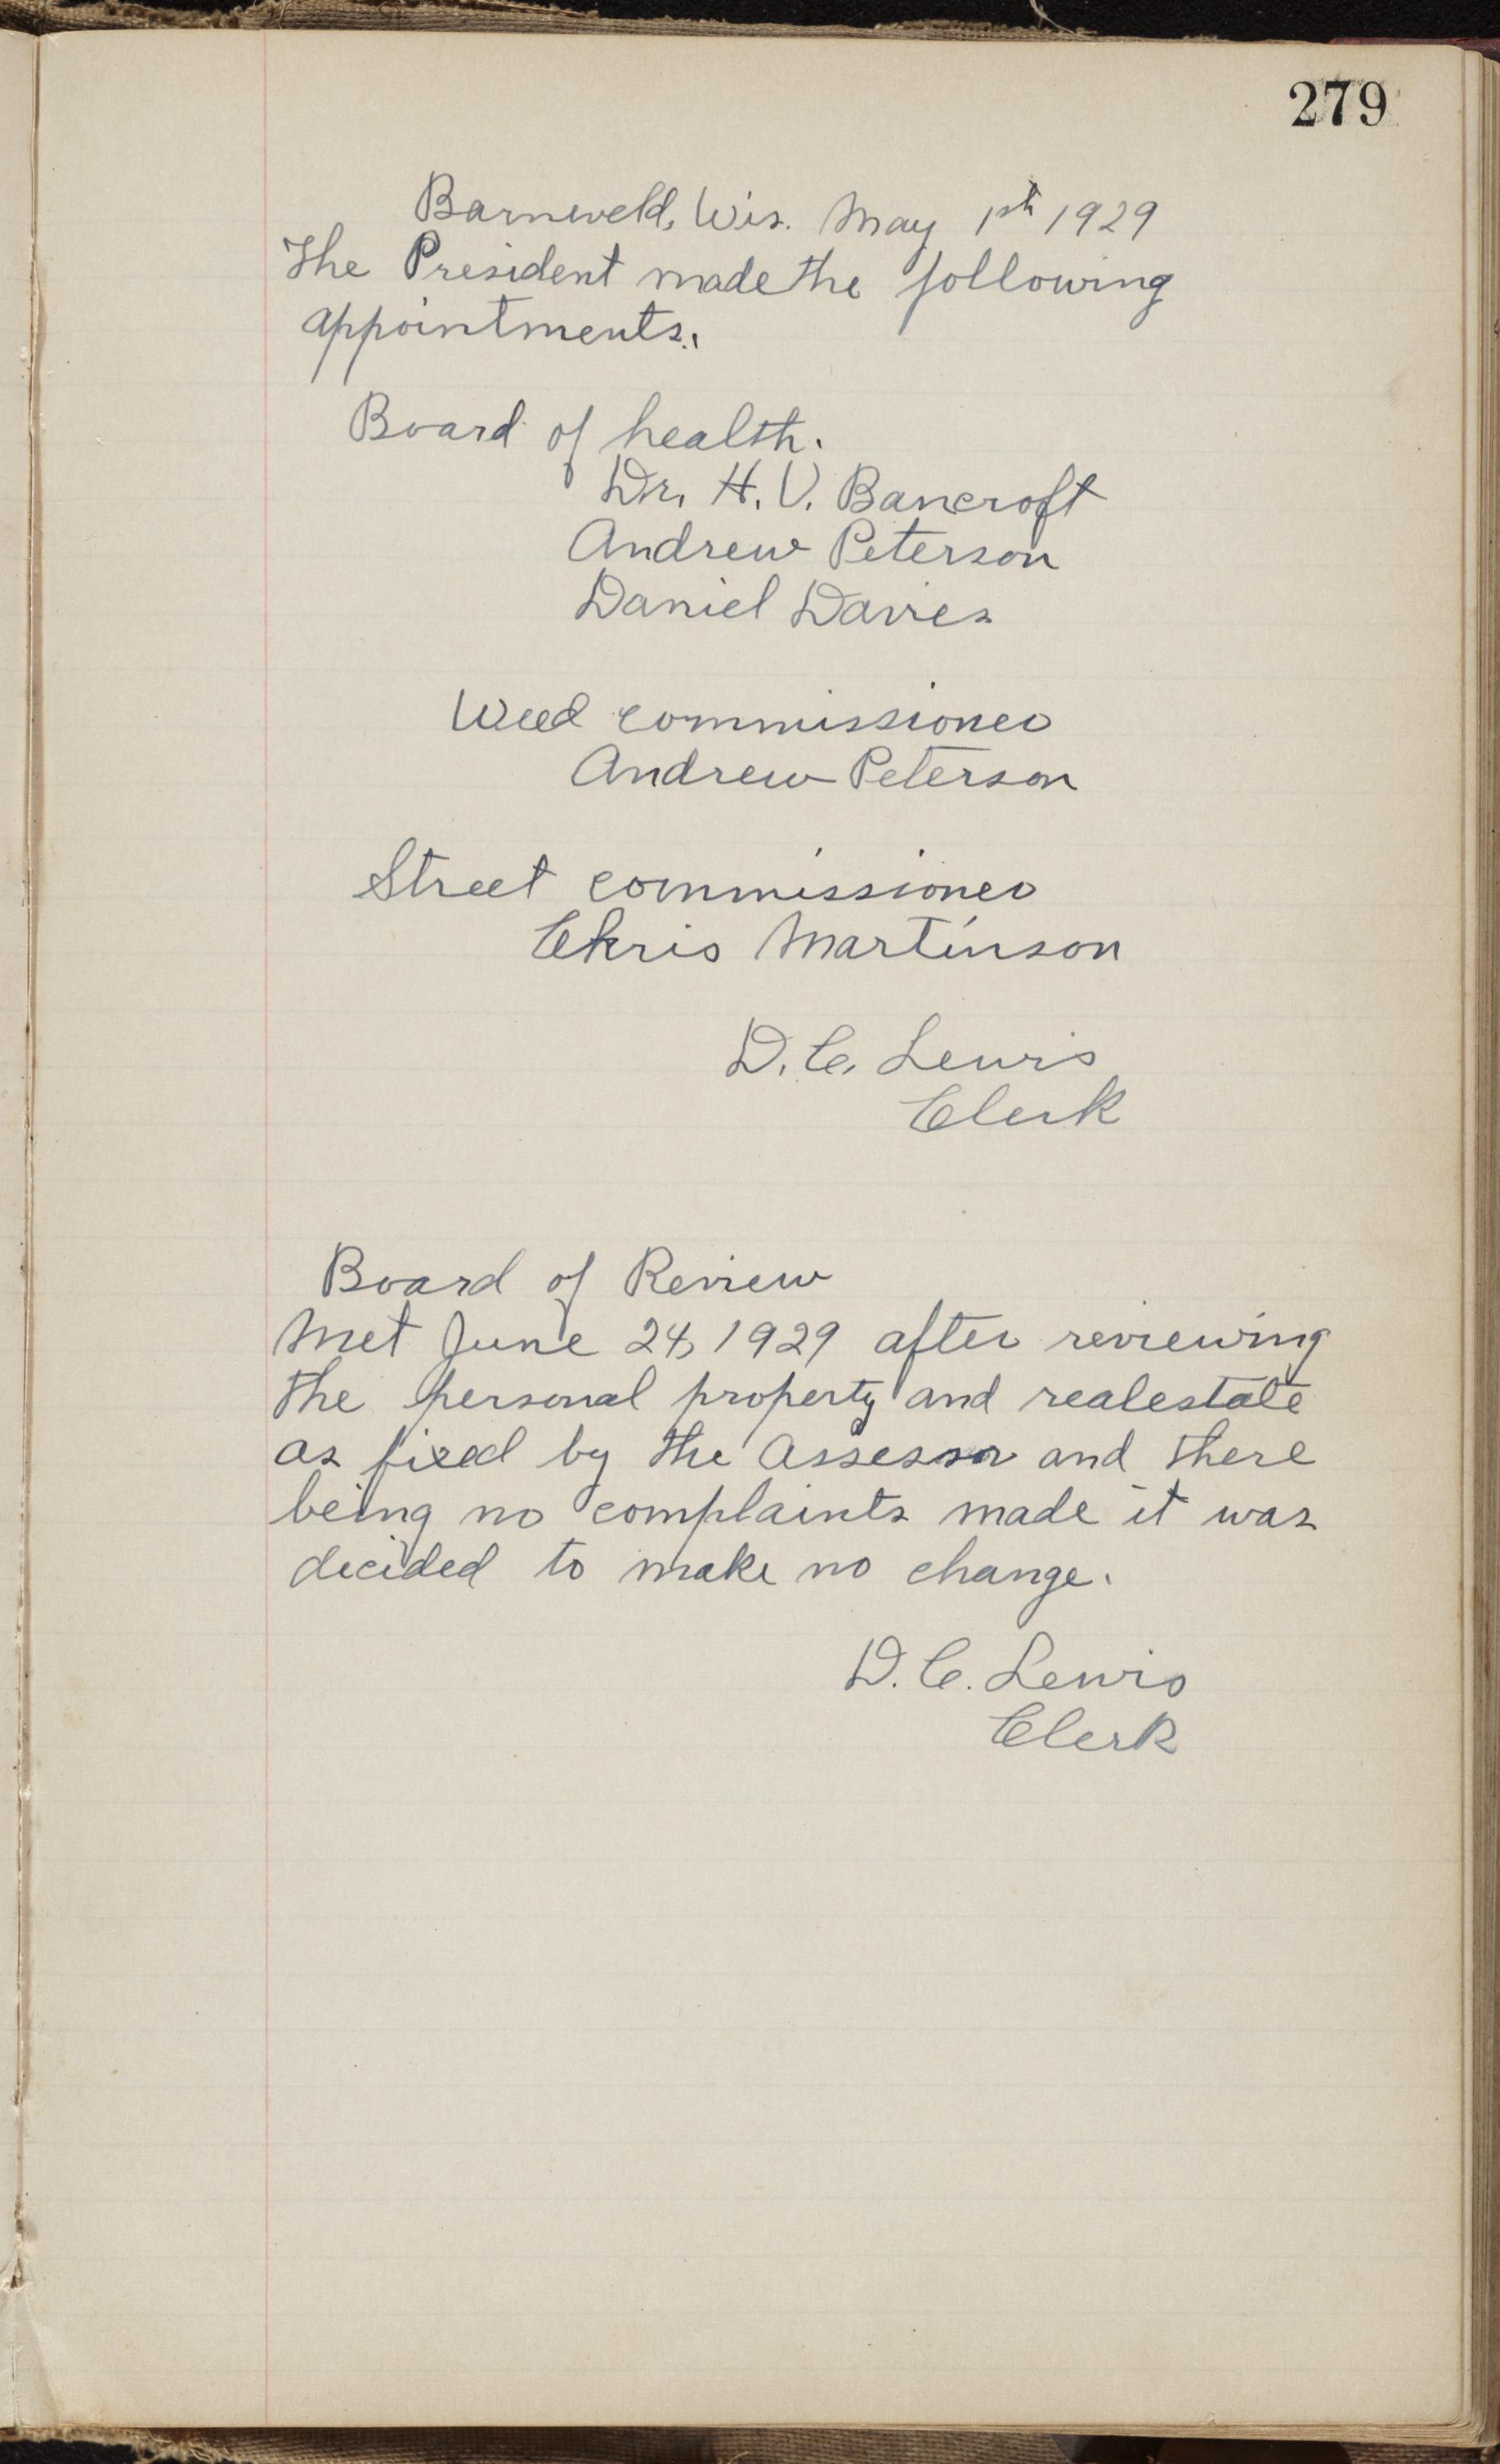 279
Barneveld, Wis. May 1st 1929
The President made the following
appointments.
Board of health.
Dr. H. V. Bancroft
Andrew Peterson
Daniel Davies
Weed commissioner
Andrew Peterson
Street commissioner
Chris Martinson
D. C. Lewis
Clerk
Board of Review
Met June 24, 1929 after reviewing
the personal property and realestate
as fixed by the Assessor and there
being no complaints made it was
decided to make no change.
D. C. Lewis
Clerk